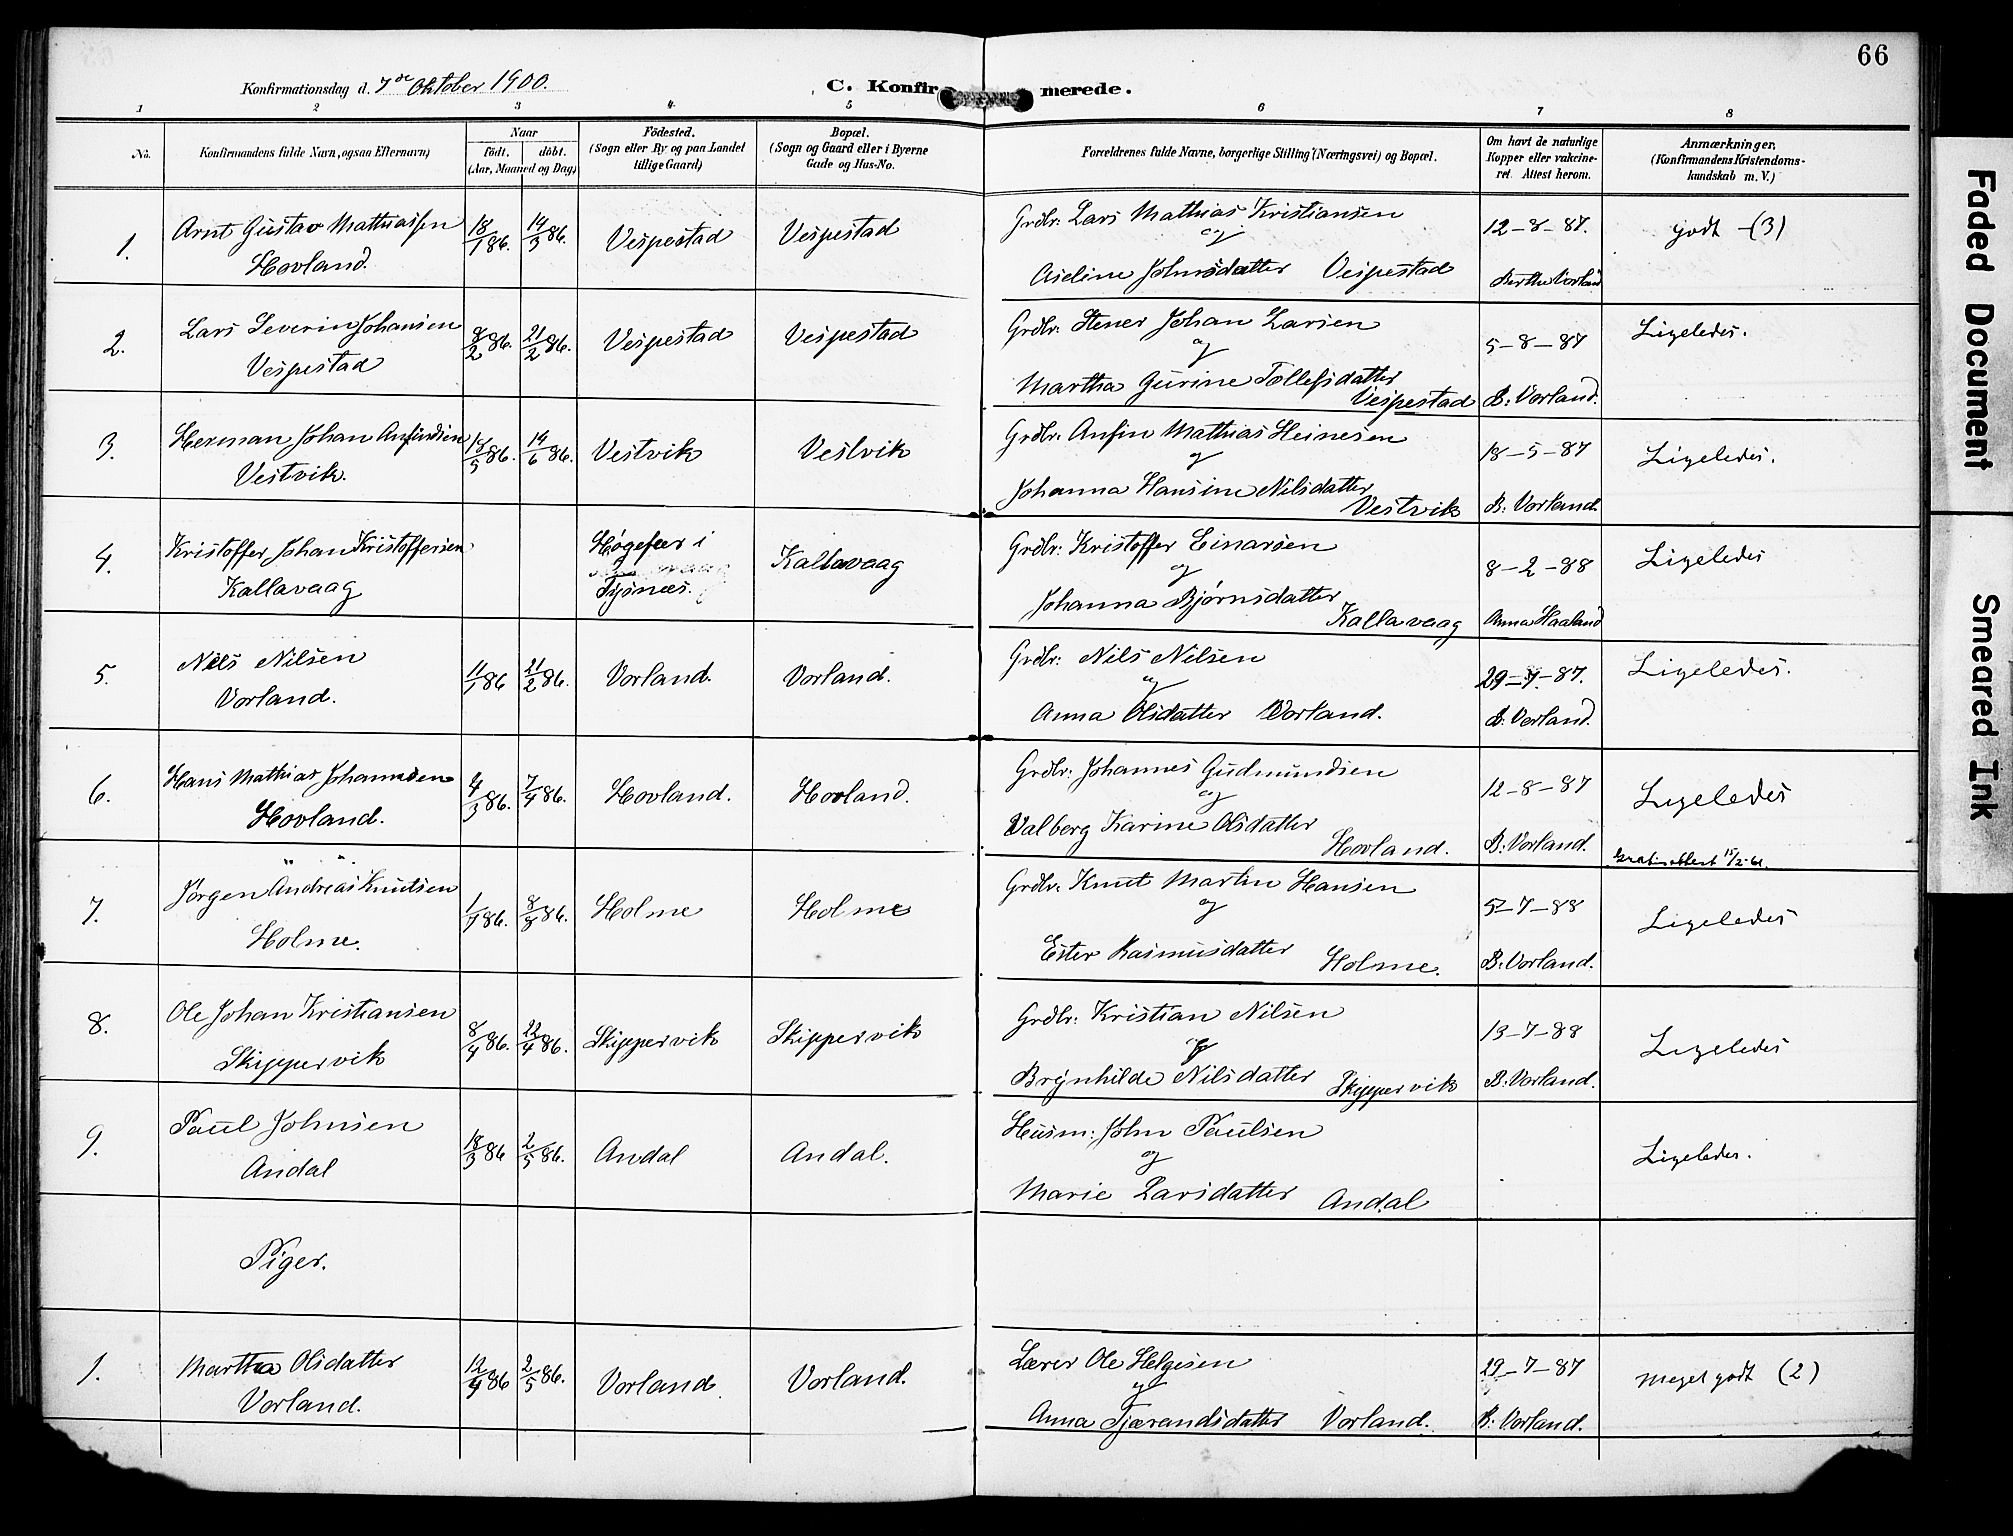 66
Konfirmationsdag d. 7de Oktober 1900.
C. Konfirmerede.
1 2 3 4. 5 6 7 8
No.
Konfirmandens fulde Navn, ogsaa Efternavn)
Naar
födt. döbt.
(Aar, Maaned og Dag)
Födested.
(Sogn eller By og paa Landet
tillige Gaard)
Bopæl.
(Sogn og Gaard eller i Byerne
Gade og Hus-No.
Forældrenes fulde Navne, borgerlige Stilling (Næringsvei) og Bopæl.
Om havt de naturlige
Kopper eller vakcine-
ret. Attest herom.
Anmærkninger.
(Konfirmandens Kristendoms-
kundskab m. V.)
1. Arnt Gustav Mathiassen
Hovland.
18/1 86. 14/3 86. Vespestad Vespestad
Grdbr: Lars Mathias Kristiansen
og
Aseline Johnsdatter Vespestad
12-8-87.
Berthe Vorland
godt -(3)
2. Lars Severin Johansen
Vespestad
8/2 86. 21/2 86. Vespestad Vespestad
Grdbr: Stener Johan Larsen
og
Martha Gurine Tollefsdatter
Vespestad
5-8-87
B: Vorland.
Ligeledes.
3. Herman Johan Anfindsen
Vestvik.
86. 14/6 86. Vestvik Vestvik
Grdbr: Anfin Mathias Heinesen
og
Johanna Hansine Nilsdatter
Vestvik
18-5-87
B: Vorland.
Ligeledes.
4. Kristoffer Johan Kristoffersen
Kallavaag
i
Tysnæs.
Kallavaag
Grdbr: Kristoffer Einarsen
og
Johanna Bjørnsdatter
Kallavaag
8-2-88
Anna Haaland
Ligeledes
5. Nils Nilsen
Vorland.
11/1 86 21/2 86. Vorland. Vorland.
Grdbr: Nils Nilsen
og
Anna Olsdatter Vorland.
29-7-87.
B: Vorland.
Ligeledes.
6. Hans Mathias Johannesen
Hovland.
4/3 86. 7/4 86. Hovland. Hovland.
Grdbr: Johannes Gudmundsen
og
Valborg Karine Olsdatter
Hovland.
12-8-87
B: Vorland.
Ligeledes
7. Jørgen Andreas Knutsen
Holme.
86. 86. Holme Holme
Grdbr: Knut Martin Hansen
og
Ester Rasmusdatter Holme.
5-7-88
B: Vorland.
Ligeledes
8. Ole Johan Kristiansen
Skippervik
8/4 86. 22/4 86. Skippervik Skippervik
Grdbr: Kristian Nilsen
og
Brynhilde Nilsdatter Skippervik
13-7-88
B: Vorland.
Ligeledes
9. Paul Johnsen
Andal
18/3 86 2/5 86. Andal Andal.
Husm: John Paulsen
og
Marie Larsdatter Andal
Ligeledes.
Piger.
1. Martha Olsdatter
Vorland.
12/4 86 2/5 86. Vorland Vorland.
Lærer Ole Helgesen
og
Anna Tjærandsdatter Vorland.
29-7-87
B: Vorland.
meget godt (2)
Faded Document
Smeared Ink